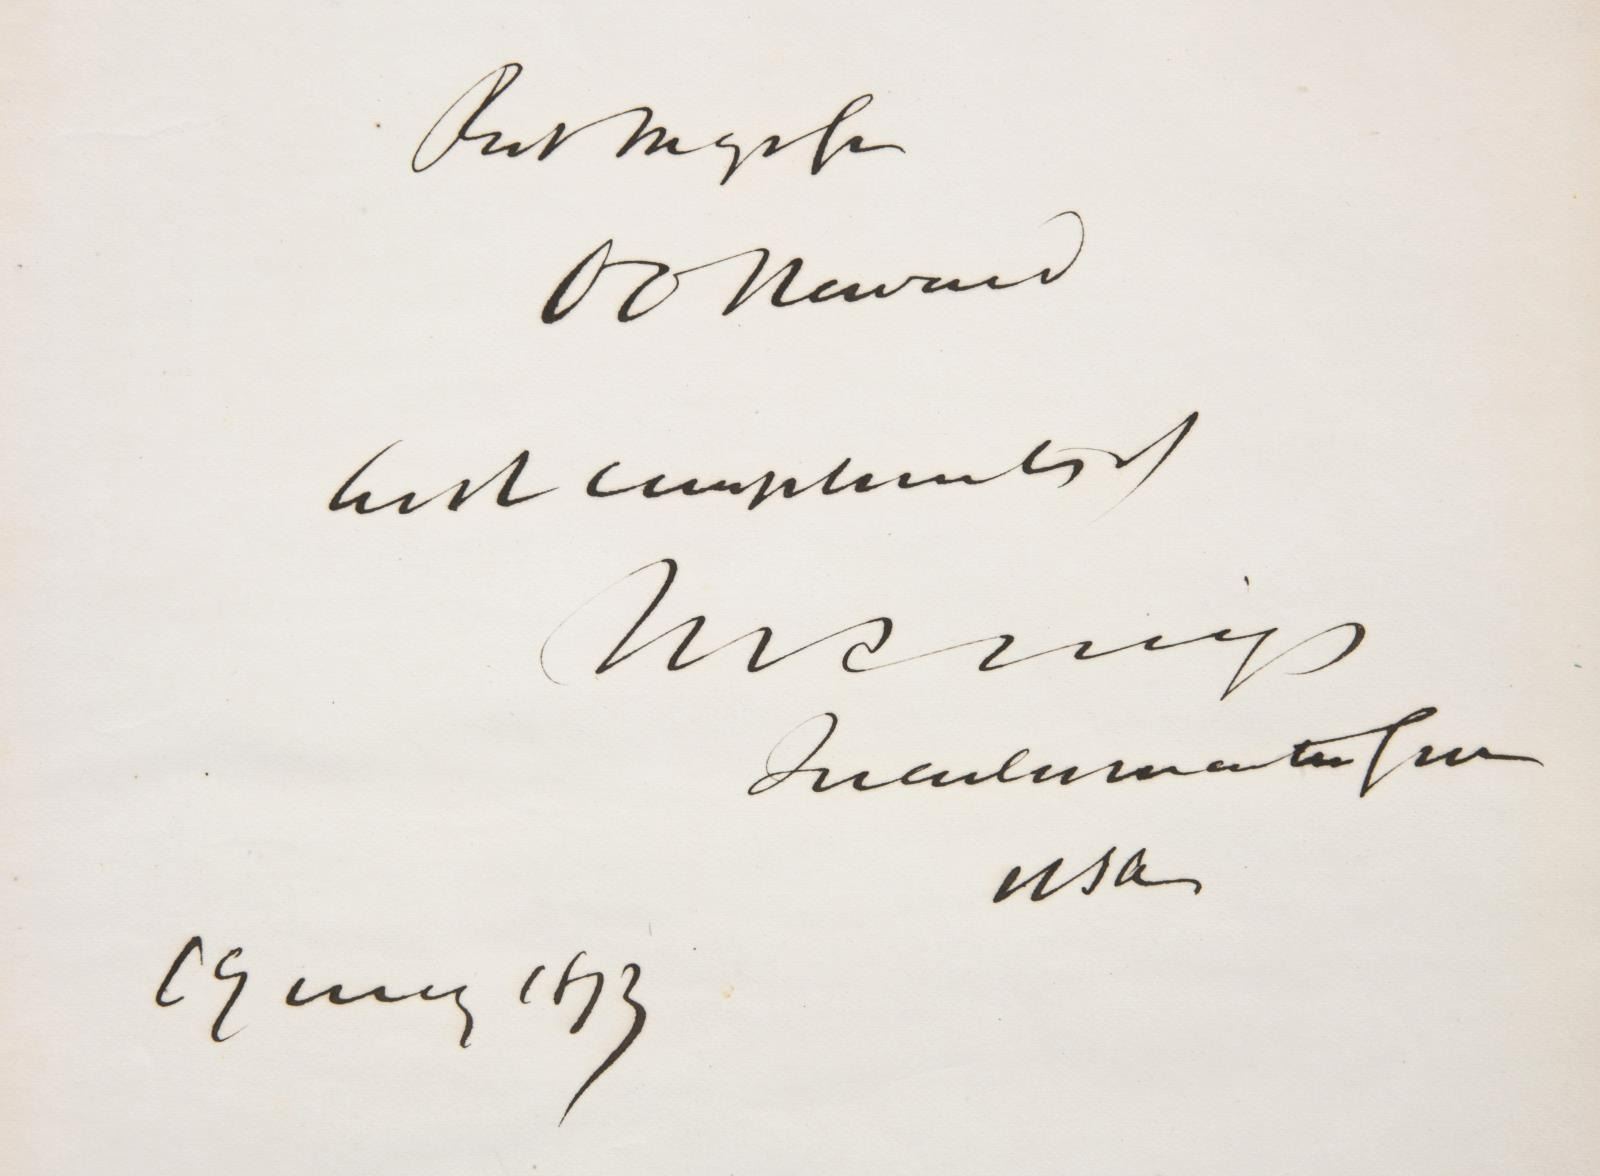 Brt Maj Gen
O O Howard
with compliments of
M C Meigs
Quartermaster Gen
USA
19 May 1873